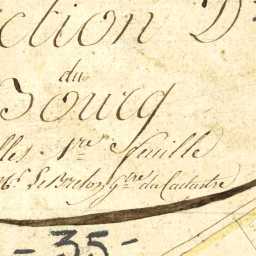 ction D
du
Bourg
lles 1re feuille
Mr. Le Breton, Gre. du Cadastre
- 35 -